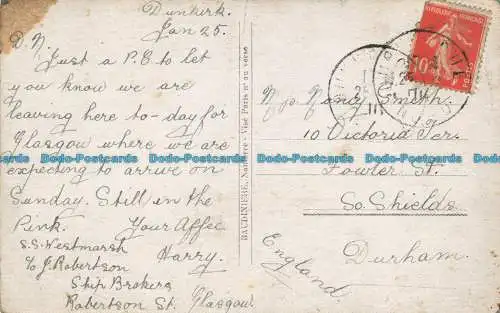 Dunkirk.
Jan 25.
D. N.
Just a P.C to let
you know we are
leaving here to-day for
Glasgow where we are
expecting to arrive on
Sunday. Still in the
Pink. Your Affec
Harry.
S.S. Westmarsh
c/o J. Robertson
Ship Brokers
Robertson St. Glasgow
BAUDINIÈRE, Nanterre
au verso
Nancy Smith.
10 Victoria Ter.
Fowler St.
So. Shields
Durham.
England
10
Dodo-Postcards Dodo-Postcards Dodo-Postcards Dodo-Postcards Dodo-Postcards Dodo-Postcards